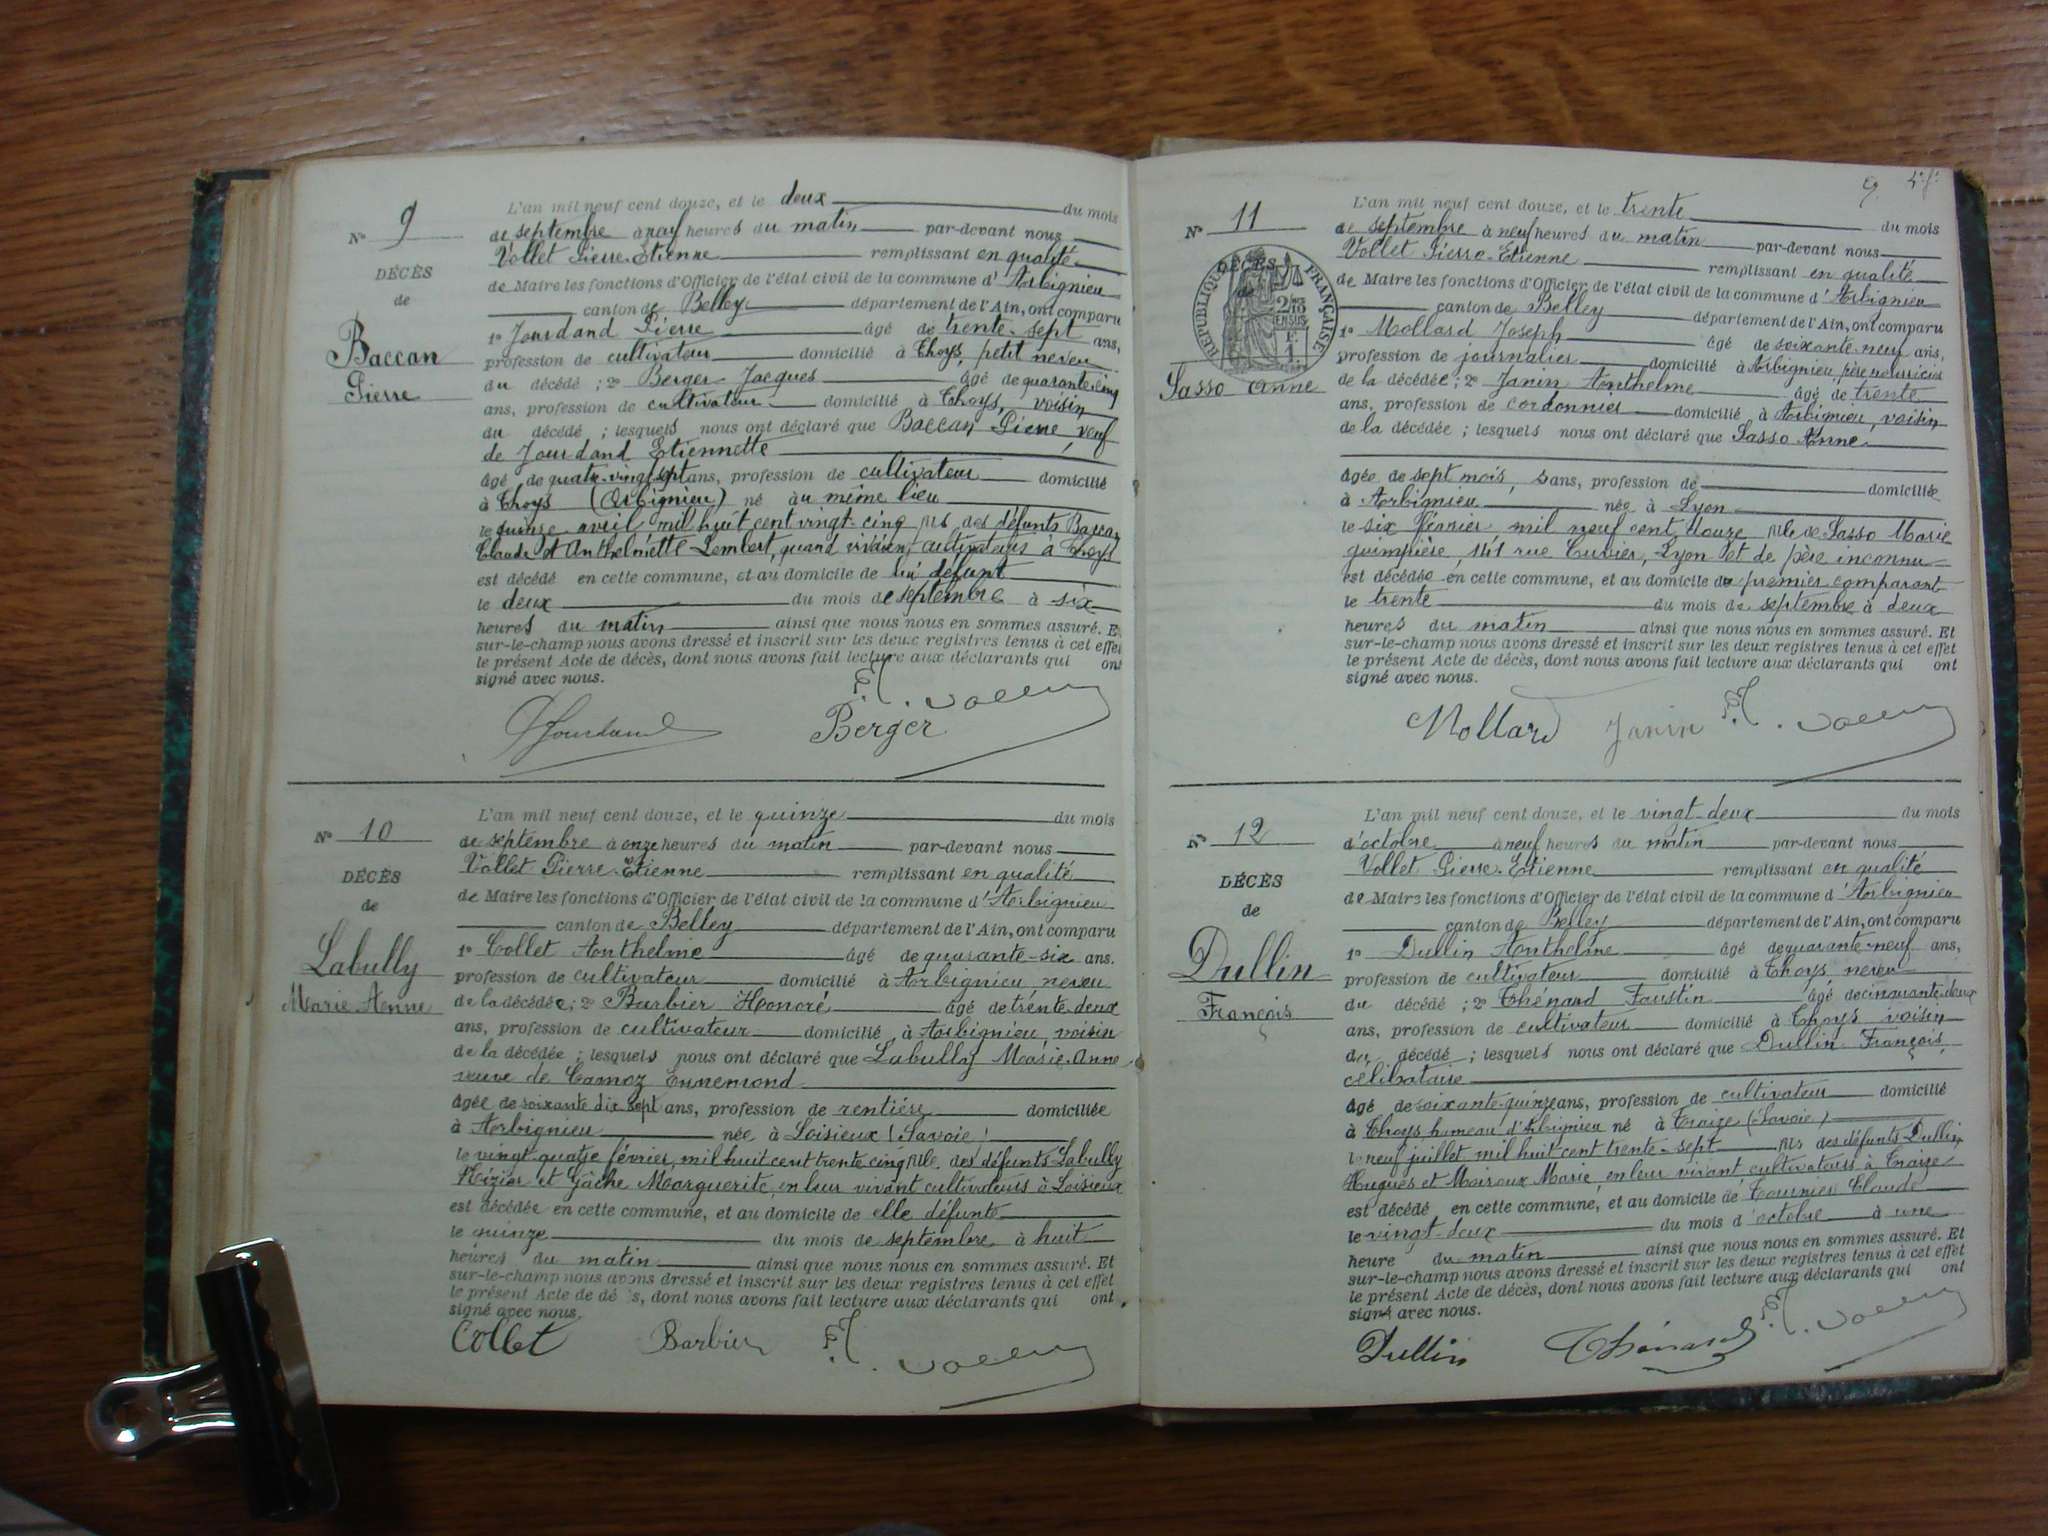 L'an mil neuf cent douze, et le deux du mois
N° 9
de septembre à neuf heures du matin par-devant nous
Vollet Pierre-Etienne remplissant en qualité
DÉCÈS
de Maire les fonctions d'Officier de l'état civil de la commune d'Arbignieu
de
canton de Belley département de l'Ain, ont comparu
1° Jourdand Pierre âgé de trente-sept ans,
Baccan
profession de cultivateur domicilié à Thoys, petit neveu
Pierre
du décédé ; 2° Berger Jacques âgé de quarante-cinq
ans, profession de cultivateur domicilié à Thoys, voisin
du décédé ; lesquels nous ont déclaré que Baccan Pierre, veuf
de Jourdand Etiennette
âgé de quatre-vingt-sept ans, profession de cultivateur domicilié
à Thoys (Arbignieu) né au même lieu
le quinze avril mil huit cent vingt-cinq fils des défunts Baccan
Claude et Anthelmette Lembert, quand vivaient cultivateurs à Thoys
est décédé en cette commune, et au domicile de lui défunt
le deux du mois de septembre à six
heures du matin ainsi que nous nous en sommes assuré. Et
sur-le-champ nous avons dressé et inscrit sur les deux registres tenus à cet effet
le présent Acte de décès, dont nous avons fait lecture aux déclarants qui ont
signé avec nous.
Jourdand Berger Vollet
L'an mil neuf cent douze, et le quinze du mois
N° 10
de septembre à onze heures du matin par-devant nous
Vollet Pierre-Etienne remplissant en qualité
DÉCÈS
de Maire les fonctions d'Officier de l'état civil de la commune d'Arbignieu
de
canton de Belley département de l'Ain, ont comparu
1° Collet Anthelme âgé de quarante-six ans.
Labully
profession de cultivateur domicilié à Arbignieu, neveu
Marie Anne
de la décédée ; 2° Barbier Honoré âgé de trente-deux
ans, profession de cultivateur domicilié à Arbignieu, voisin
de la décédée ; lesquels nous ont déclaré que Labully Marie-Anne
veuve de Camoz Ennemond
âgée de soixante dix sept ans, profession de rentière domiciliée
à Arbignieu née à Loisieux (Savoie)
le vingt-quatre février, mil huit cent trente cinq fille des défunts Labully
et Gâche Marguerite, en leur vivant cultivateurs à Loisieux
est décédée en cette commune, et au domicile de elle défunte
le quinze du mois de septembre à huit
heures du matin ainsi que nous nous en sommes assuré. Et
sur-le-champ nous avons dressé et inscrit sur les deux registres tenus à cet effet
le présent Acte de décès, dont nous avons fait lecture aux déclarants qui ont
signé avec nous.
Collet Barbier Vollet
L'an mil neuf cent douze, et le trente du mois
N° 11
de septembre à neuf heures du matin par-devant nous
Vollet Pierre-Etienne remplissant en qualité
DÉCÈS
RÉPUBLIQUE FRANÇAISE
de Maire les fonctions d'Officier de l'état civil de la commune d'Arbignieu
canton de Belley département de l'Ain, ont comparu
1° Mollard Joseph âgé de soixante-neuf ans,
profession de journalier domicilié à Arbignieu, père nourricier
Sasso Anne
de la décédée ; 2° Janin Anthelme âgé de trente
ans, profession de cordonnier domicilié à Arbignieu, voisin
de la décédée ; lesquels nous ont déclaré que Sasso Anne
âgée de sept mois, sans, profession de domiciliée
à Arbignieu née à Lyon
le six février, mil neuf cent douze fille de Sasso Marie
guimpière, 141 rue Cuvier, Lyon et de père inconnu
est décédée en cette commune, et au domicile du premier comparant
le trente du mois de septembre à deux
heures du matin ainsi que nous nous en sommes assuré. Et
sur-le-champ nous avons dressé et inscrit sur les deux registres tenus à cet effet
le présent Acte de décès, dont nous avons fait lecture aux déclarants qui ont
signé avec nous.
Mollard Janin Vollet
L'an mil neuf cent douze, et le vingt-deux du mois
N° 12
d'octobre à neuf heures du matin par-devant nous
Vollet Pierre-Etienne remplissant en qualité
DÉCÈS
de Maire les fonctions d'Officier de l'état civil de la commune d'Arbignieu
de
canton de Belley département de l'Ain, ont comparu
1° Dullin Anthelme âgé de quarante-neuf ans,
Dullin
profession de cultivateur domicilié à Thoys, neveu
François
du décédé ; 2° Thénard Faustin âgé de cinquante-deux
ans, profession de cultivateur domicilié à Thoys voisin
du décédé ; lesquels nous ont déclaré que Dullin François,
célibataire
âgé de soixante-quinze ans, profession de cultivateur domicilié
à Thoys, hameau d'Arbignieu né à Traize (Savoie)
le neuf juillet mil huit cent trente-sept fils des défunts Dullin
Hugues et Moiroux Marie, en leur vivant cultivateurs à Traize
est décédé en cette commune, et au domicile de Tournier Claude
le vingt-deux du mois d'octobre à une
heure du matin ainsi que nous nous en sommes assuré. Et
sur-le-champ nous avons dressé et inscrit sur les deux registres tenus à cet effet
le présent Acte de décès, dont nous avons fait lecture aux déclarants qui ont
signé avec nous.
Dullin Thénard Vollet